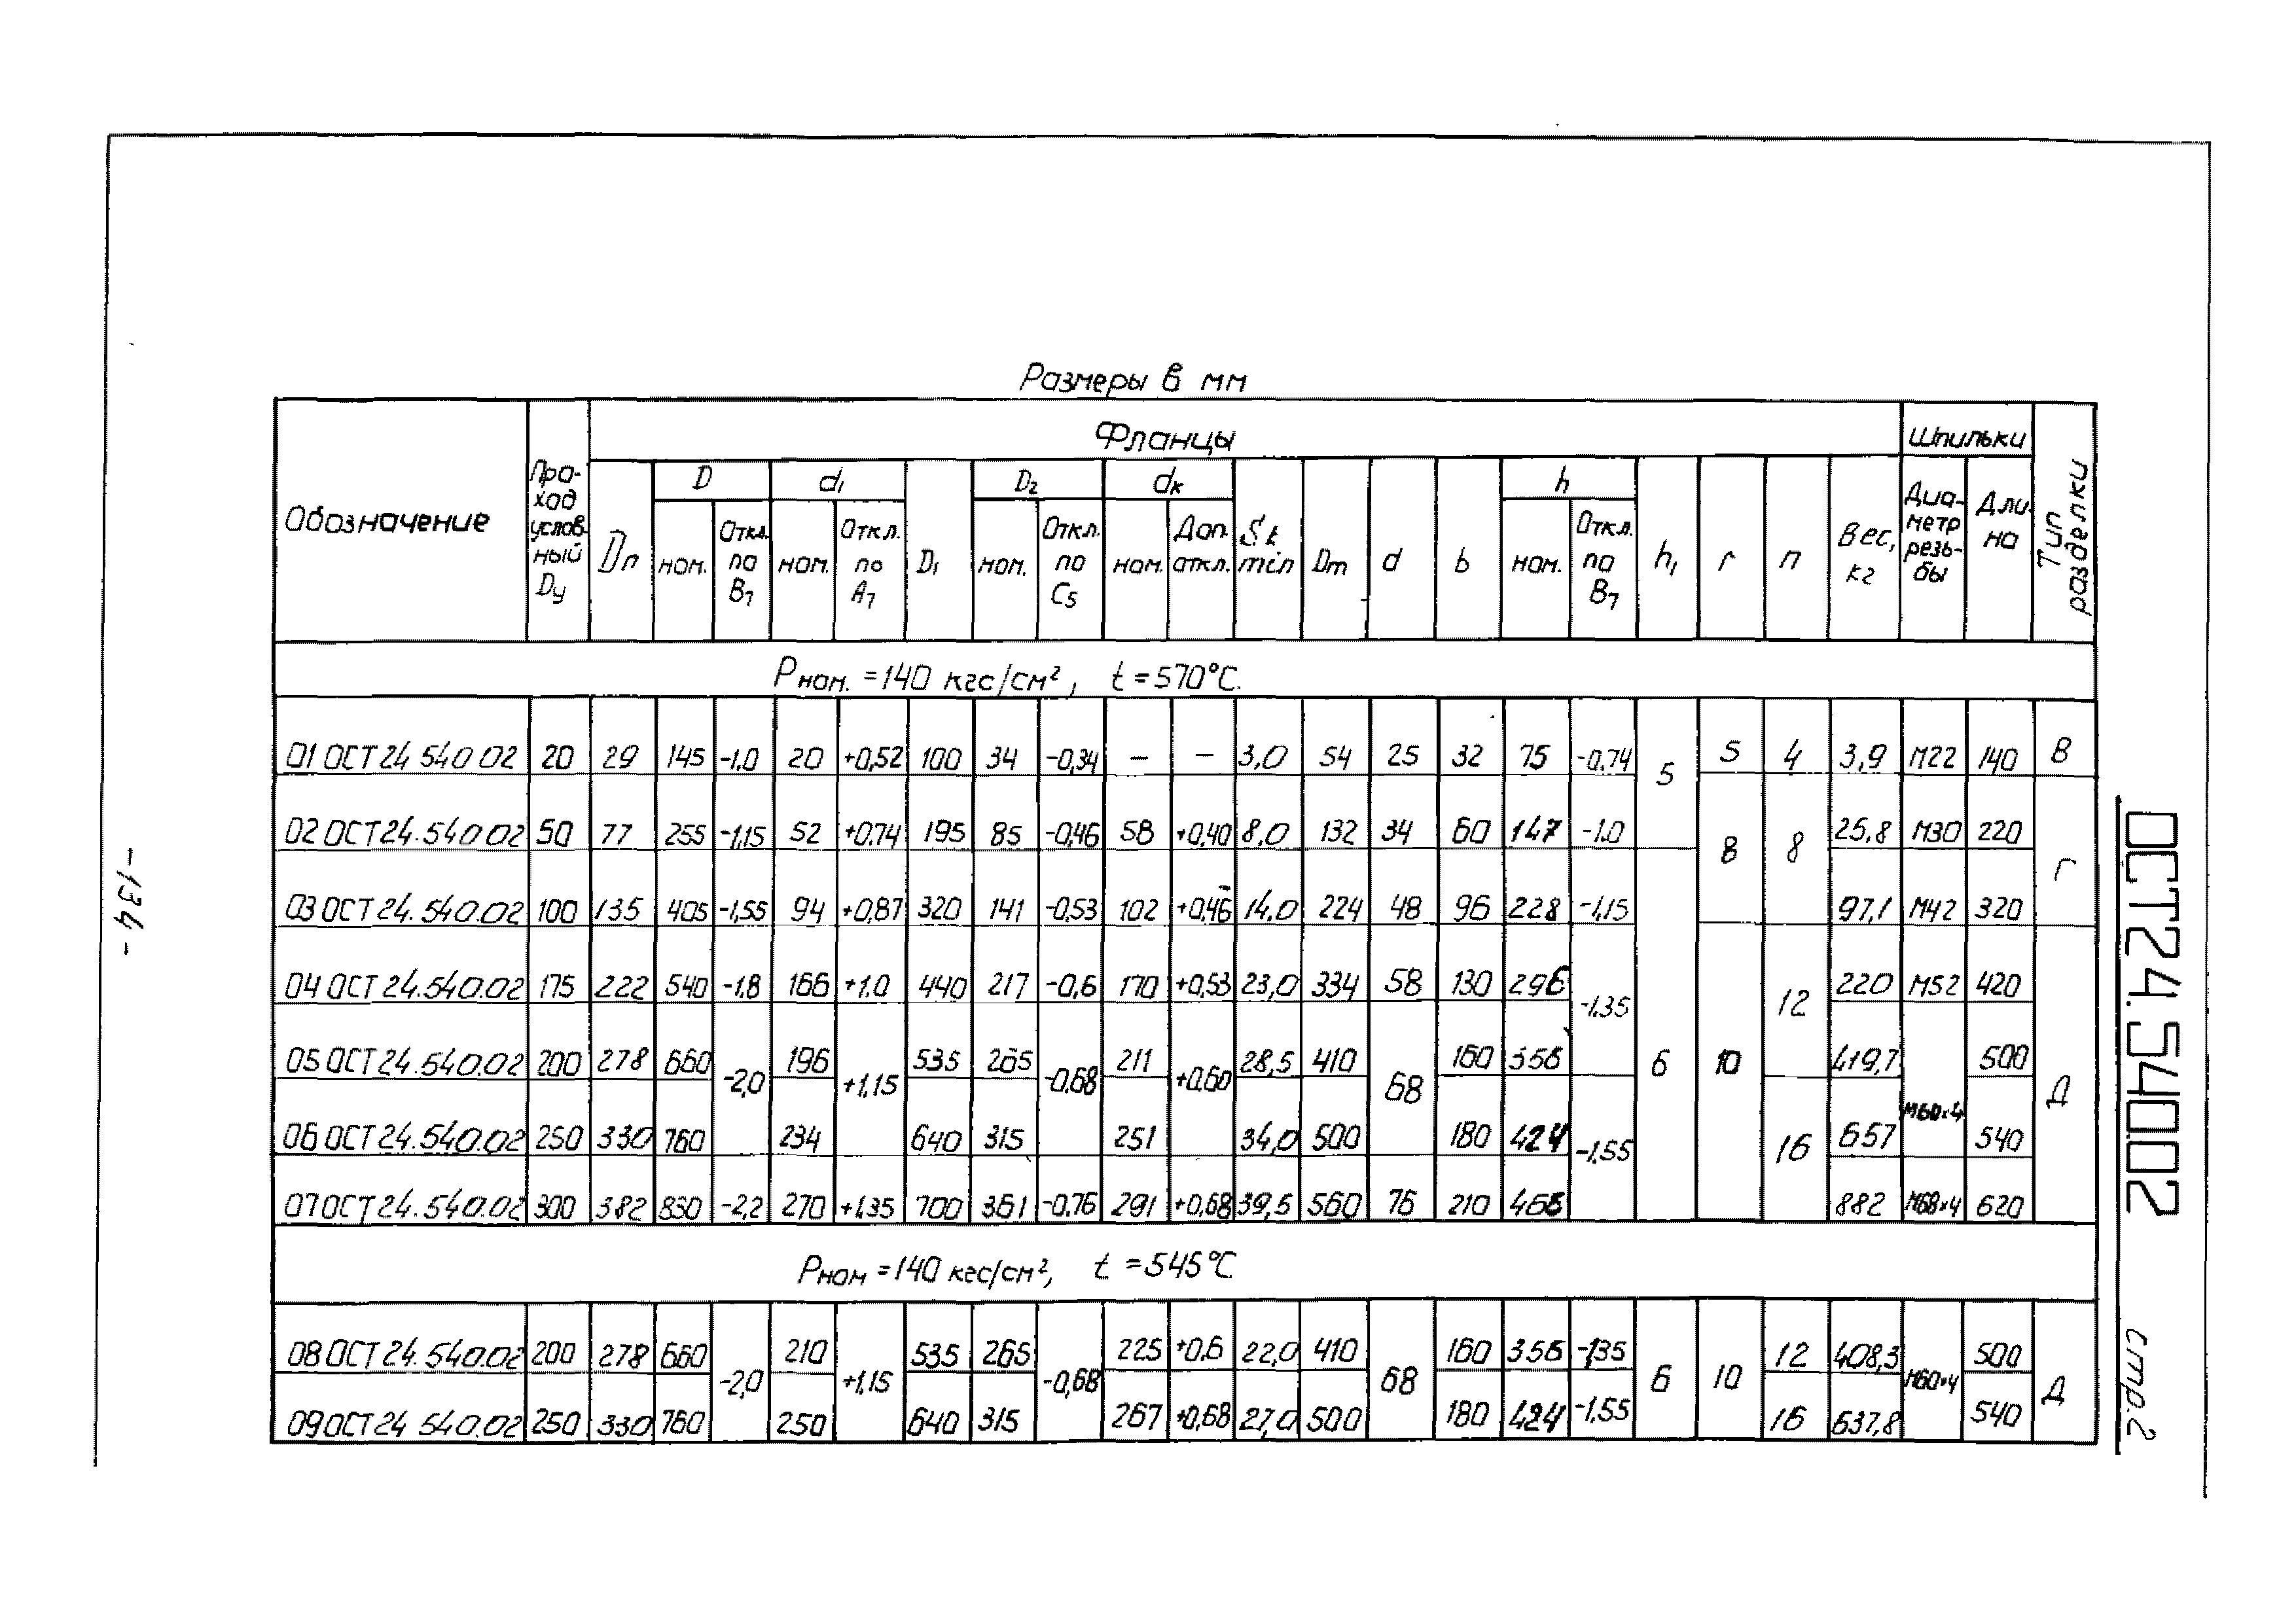 Размеры в мм
Обозначение
Проход условный Dу
Фланцы
Шпильки
Тип разделки
Dп
D
d₁
D₁
D₂
dк
Sк min
Dm
d
b
h
h₁
r
n
Вес, кг
Диаметр резьбы
Длина
ном.
Откл. по В₇
ном.
Откл. по А₇
ном.
Откл. по С₅
ном.
Доп. откл.
ном.
Откл. по В₇
Рном. = 140 кгс/см², t = 570°С.
01 ОСТ 24.540.02 20 29 145 -1.0 20 +0,52 100 34 -0,34 — — 3,0 54 25 32 75 -0.74 5 5 4 3,9 М22 140 В
02 ОСТ 24.540.02 50 77 255 -1,15 52 +0.74 195 85 -0,46 58 +0,40 8,0 132 34 60 147 -1.0 8 8 25,8 М30 220 Г
03 ОСТ 24.540.02 100 135 405 -1,55 94 +0,87 320 141 -0,53 102 +0,46 14,0 224 48 96 228 -1,15 97,1 М42 320
04 ОСТ 24.540.02 175 222 540 -1,8 166 +1.0 440 217 -0,6 170 +0,53 23,0 334 58 130 296 -1,35 6 10 12 220 М52 420 Д
05 ОСТ 24.540.02 200 278 660 -2,0 196 +1,15 535 265 -0,68 211 +0,60 28,5 410 68 160 356 419,7 М60×4 500
06 ОСТ 24.540.02 250 330 760 234 640 315 251 34,0 500 180 424 -1,55 16 657 540
07 ОСТ 24.540.02 300 382 830 -2,2 270 +1,35 700 361 -0.76 291 +0,68 39,5 560 76 210 465 882 М68×4 620
Рном = 140 кгс/см², t = 545°С
08 ОСТ 24.540.02 200 278 660 -2,0 210 +1,15 535 265 -0,68 225 +0.6 22,0 410 68 160 356 -1,35 6 10 12 408,3 М60×4 500 Д
09 ОСТ 24 540.02 250 330 760 250 640 315 267 +0,68 27,0 500 180 424 -1,55 16 637,8 540
ОСТ 24.540.02 стр. 2
- 134 -